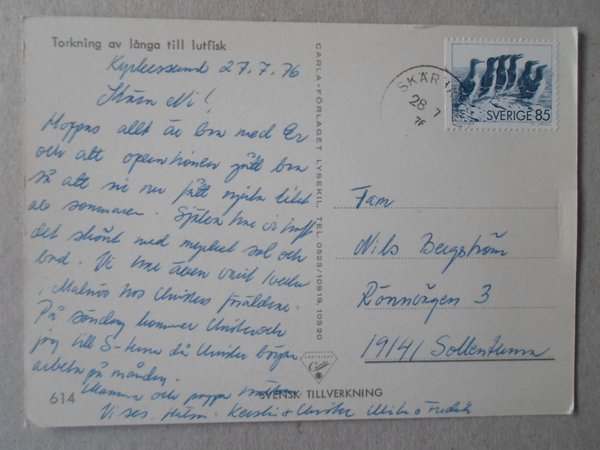 Torkning av långa till lutfisk
Kyrkesund 27.7.76
Kära Ni!
Hoppas allt är bra med Er
och att operationen gått bra
så att ni nu fått njuta litet
av sommaren. Själva har vi haft
det skönt med mycket sol och
bad. Vi har även varit 1 vecka
i Malmö hos Christers föräldrar.
På söndag kommer Christer och
jag till S-tuna då Christer börjar
arbeta på måndag.
Mamma och pappa
Vi ses. Hälsn. Kerstin & Christer
614
SVENSK TILLVERKNING
CARLA-FÖRLAGET LYSEKIL, TEL. 0523/10919, 10820
Carla
SKÄR
28 7
76
SVERIGE 85
Fam
Nils Bergström
Rönnvägen 3
19141 Sollentuna